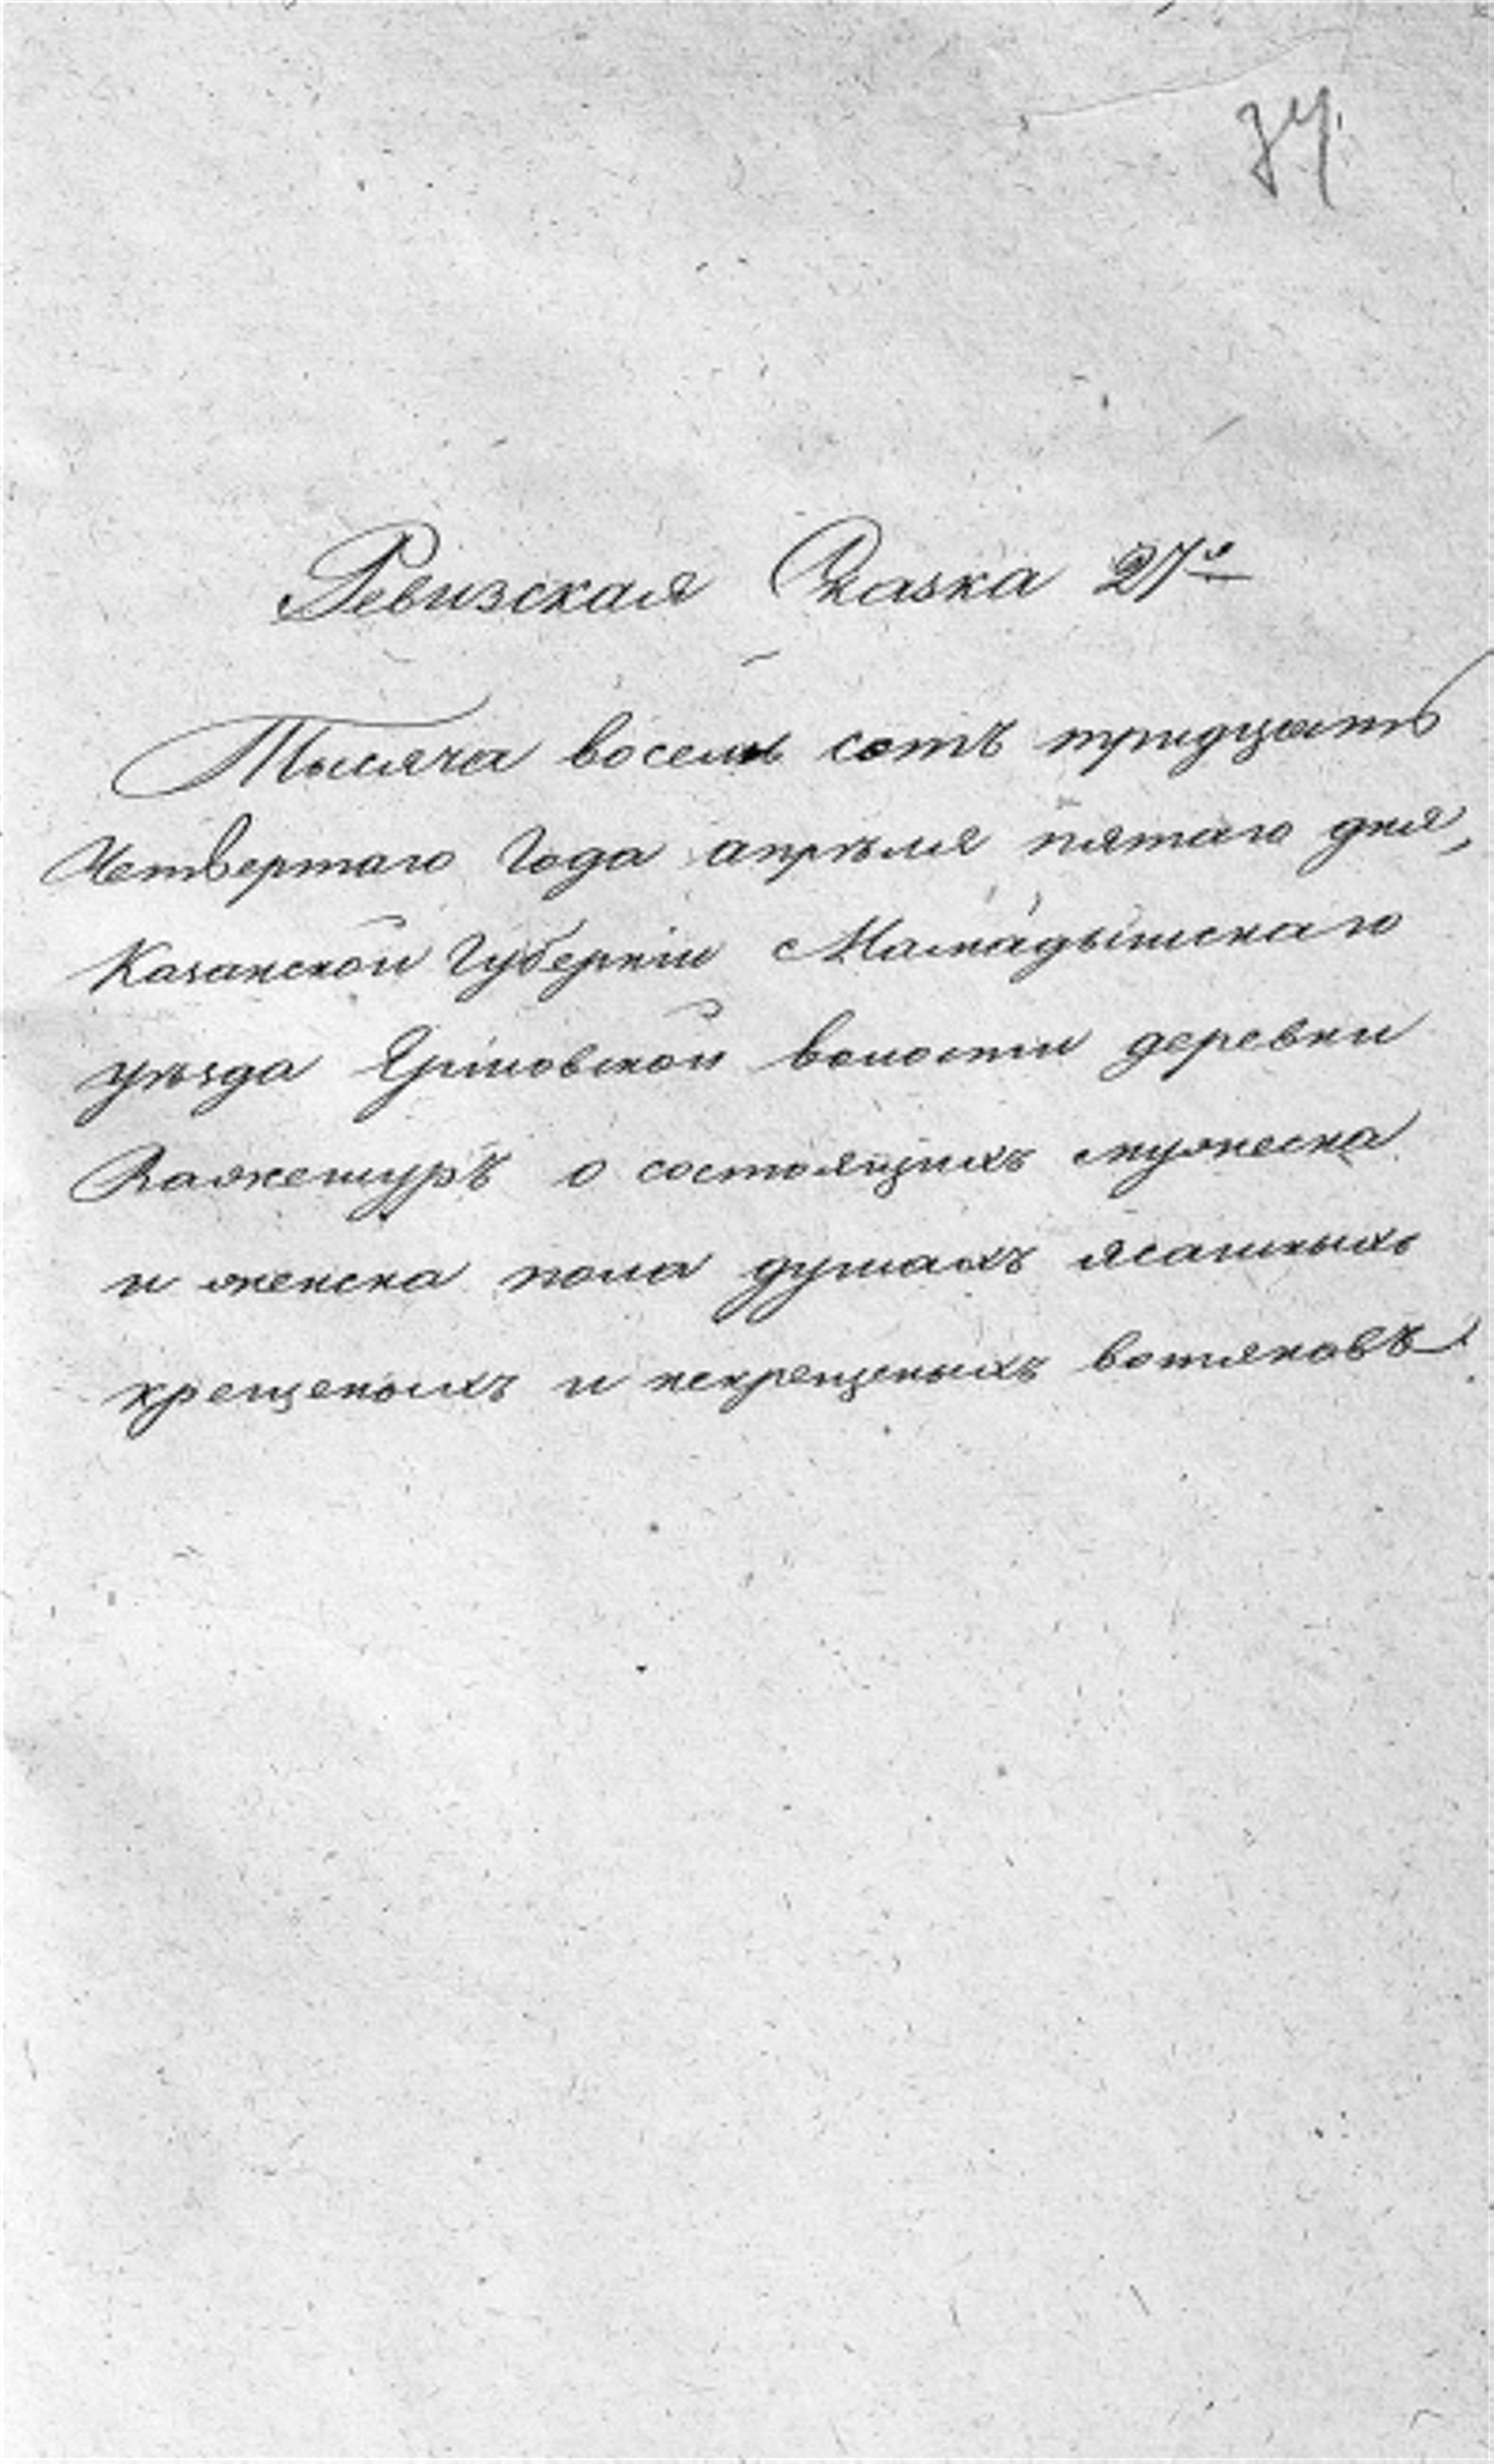 74.
Ревизская Сказка 27я
Тысяча восемь сотъ тридцать
Четвертаго Года апрѣля пятаго дня,
Казанской Губерніи Мамадышскаго
уѣзда волости деревни
о состоящихъ мужеска
и женска пола душахъ ясашныхъ
крещеныхъ и некрещеныхъ вотяковъ